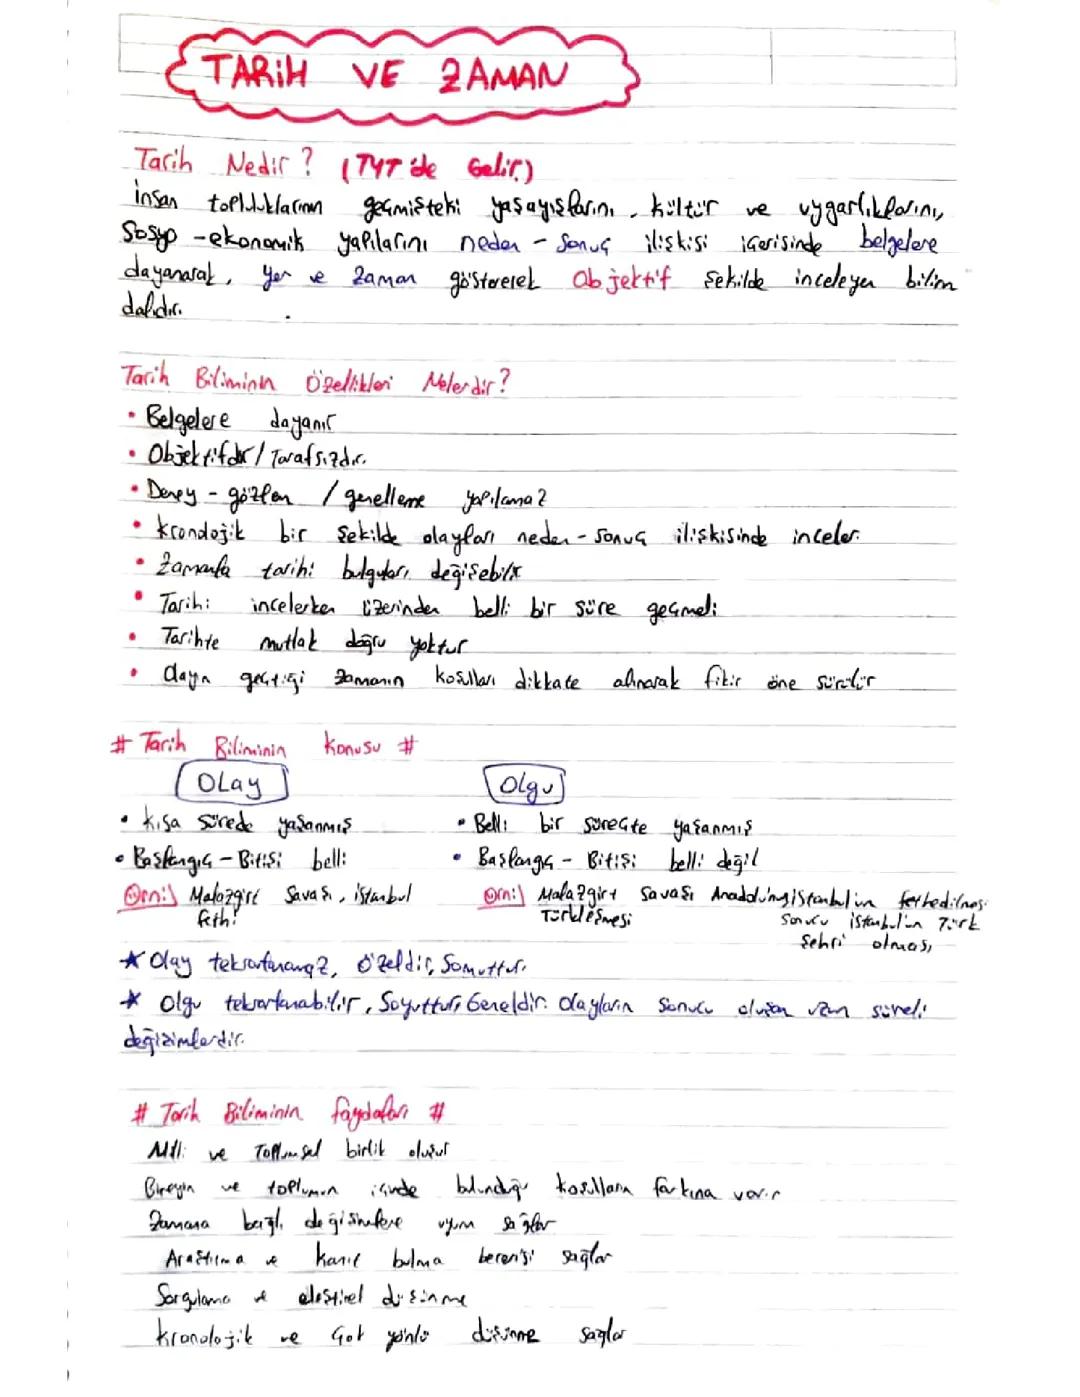 TARİH VE ZAMAN
Tarih Nedir? (TYT'de Gelir)
İnsan topluluklarının geçmişteki yaşayışlarını, kültür ve uygarlıklarını,
Sosyo-ekonomik yapılarını neden-sonuç ilişkisi içerisinde belgelere
dayanarak, yer ve zaman göstererek Objektif şekilde inceleyen bilim
dalıdır.
Tarih Biliminin Özellikleri Nelerdir?
• Belgelere dayanır
• Objektifdir/Tarafsızdır.
• Deney-gözlem / genelleme yapılamaz
• Kronolojik bir şekilde olayları neden-sonuç ilişkisinde inceler.
• Zamanla tarihi bulguları değişebilir
• Tarihi incelerken üzerinden belli bir süre geçmeli
• Tarihte mutlak doğru yoktur
• Olayın geçtiği zamanın koşulları dikkate alınarak fikir öne sürülür
# Tarih Biliminin Konusu #
Olay Olgu
• Kısa sürede yaşanmış • Belli bir süreçte yaşanmış
• Başlangıç-Bitişi belli • Başlangıç-Bitişi belli değil
Örn: Malazgirt Savaşı, İstanbul Örn: Malazgirt Savaşı Anadolu'nun İstanbul'un fethedilmesi
fethi Türkleşmesi sonucu İstanbul'un Türk
şehri olması
★ Olay tekrarlanamaz, özeldir, Somuttur.
★ Olgu tekrarlanabilir, Soyuttur, Geneldir. Olayların sonucu oluşan uzun süreli
değişimlerdir.
# Tarih Biliminin faydaları #
Milli ve Toplumsal birlik oluşur
Bireyin ve toplumun içinde bulunduğu koşulların farkına varır
Zamana bağlı değişimlere uyum sağlar
Araştırma ve kanıt bulma becerisi sağlar
Sorgulama ve eleştirel düşünme
Kronolojik ve çok yönlü düşünme sağlar